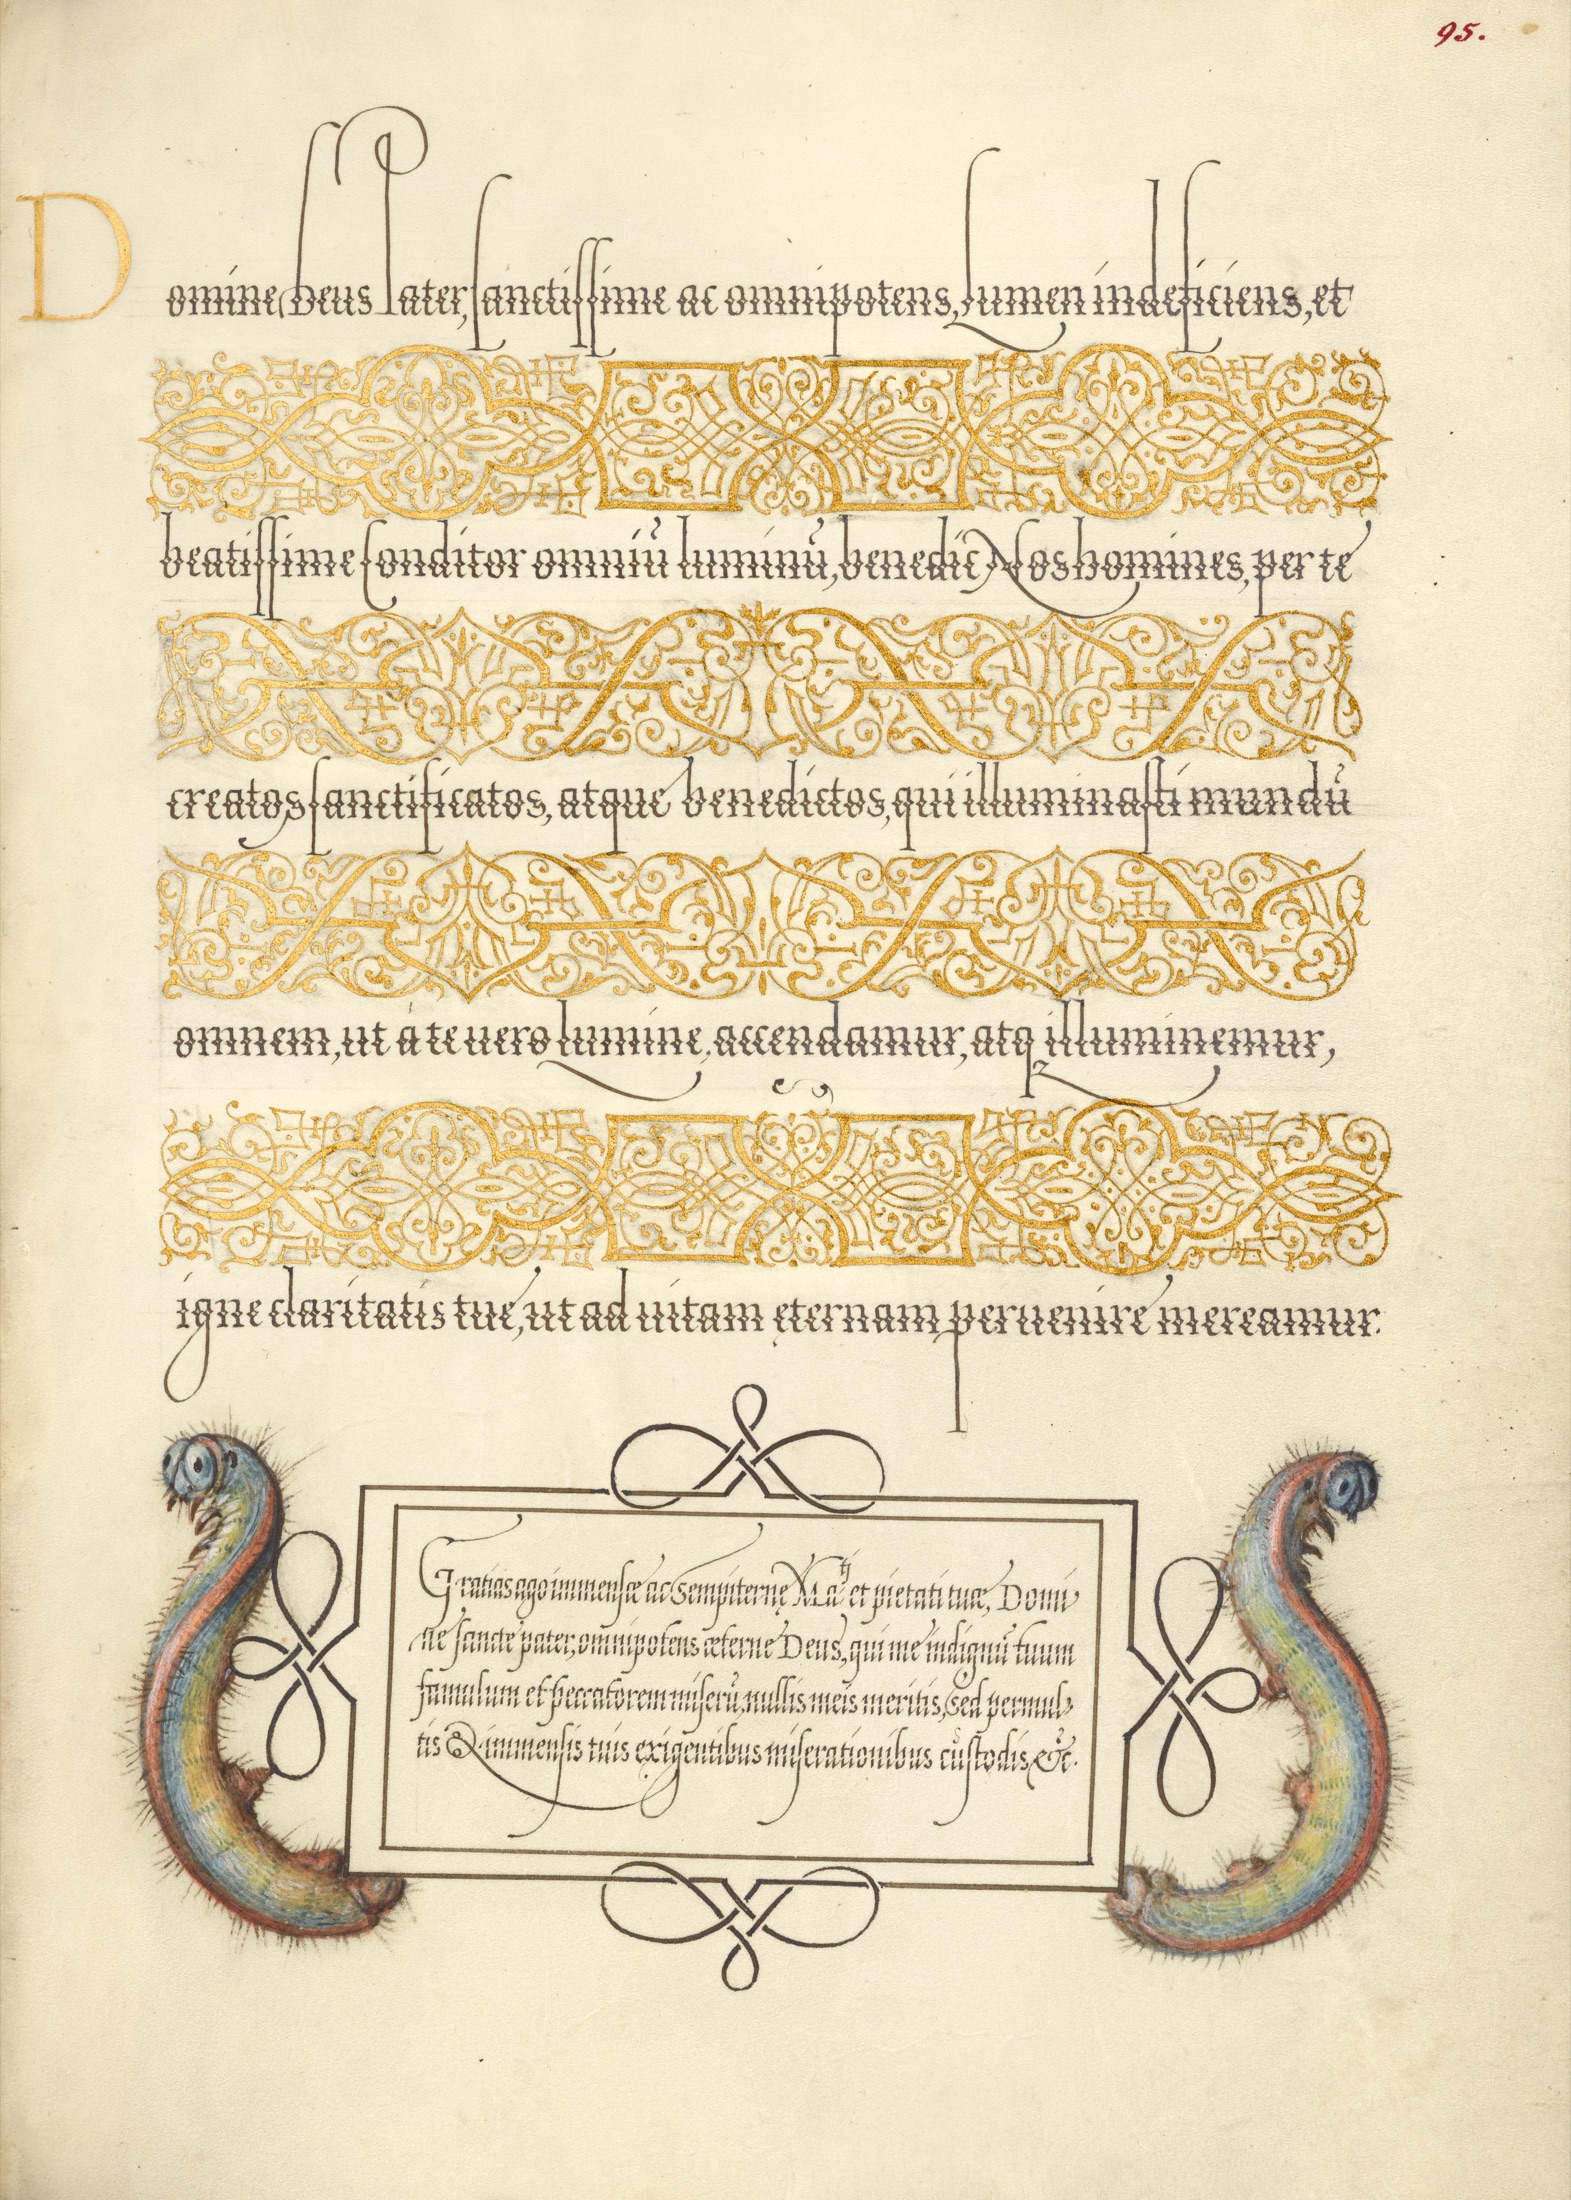 95.
Domine Deus Pater, sanctissime ac omnipotens, Lumen indeficiens, et
beatissime Conditor omniũ luminũ, benedic Nos homines, per te
creatos sanctificatos, atque benedictos, qui illuminasti mundũ
omnem, ut á te uero Lumine, accendamur, atq illuminemur,
igne claritatis tuę, ut ad uitam ęternam peruenire mereamur.
Gratias ago immensæ ac Sempiternę Ma^ti et pietati tuæ, Domi
ne sancte pater, omnipotens æterne Deus, qui me indignũ tuum
famulum et peccatorem miserũ, nullis meis meritis, sed permul
tis & immensis tuis exigentibus miserationibus custodis &c.